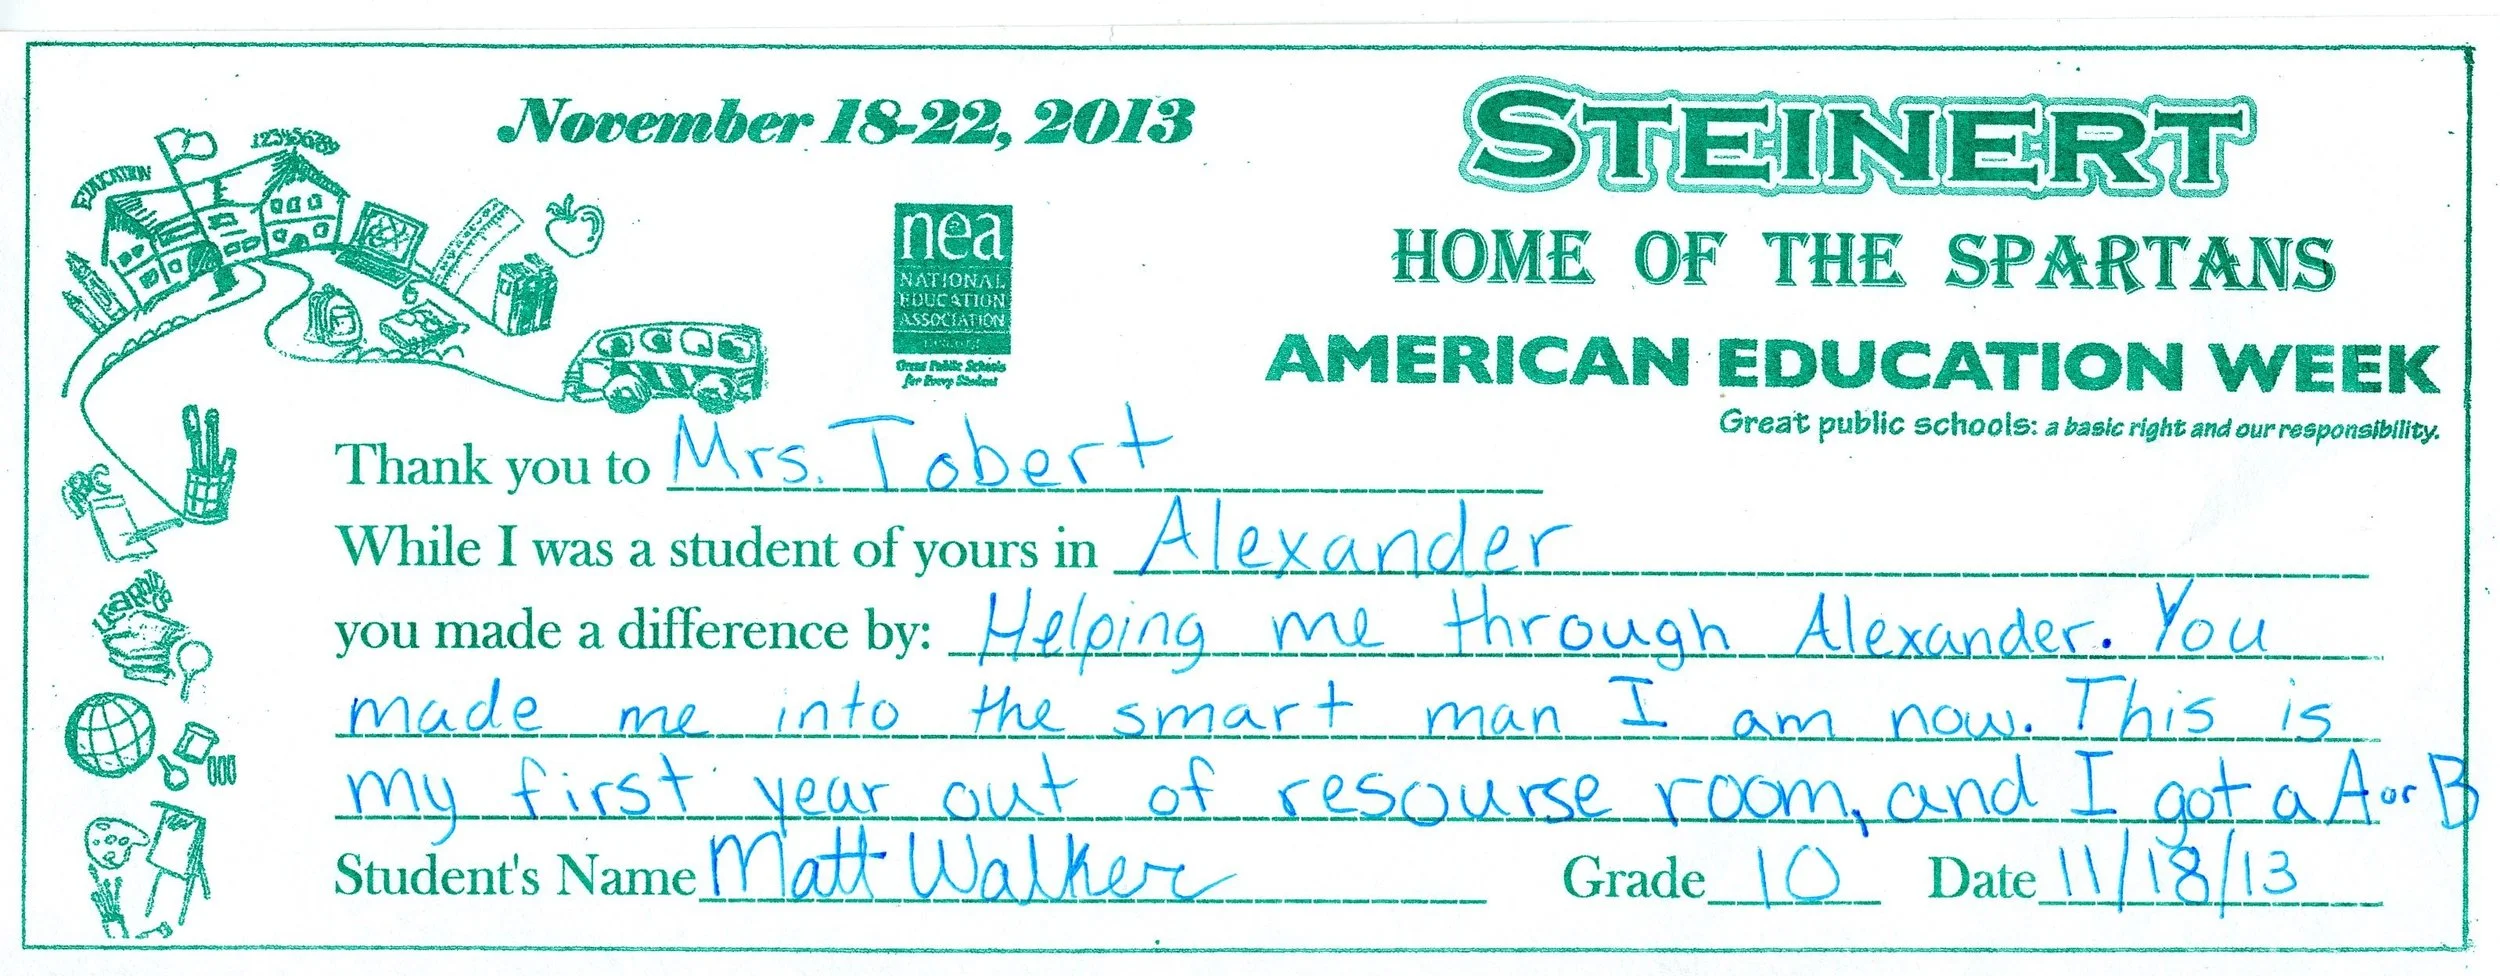 November 18-22, 2013
STEINERT
EDUCATION
123456789
nea
HOME OF THE SPARTANS
NATIONAL
EDUCATION
ASSOCIATION
Great Public Schools
for Every Student
AMERICAN EDUCATION WEEK
Great public schools: a basic right and our responsibility.
Thank you to Mrs. Tobert
While I was a student of yours in Alexander
you made a difference by: Helping me through Alexander. You
made me into the smart man I am now. This is
my first year out of resourse room, and I got a A or B
LEARNING
Student's Name Matt Walker Grade 10 Date 11/18/13